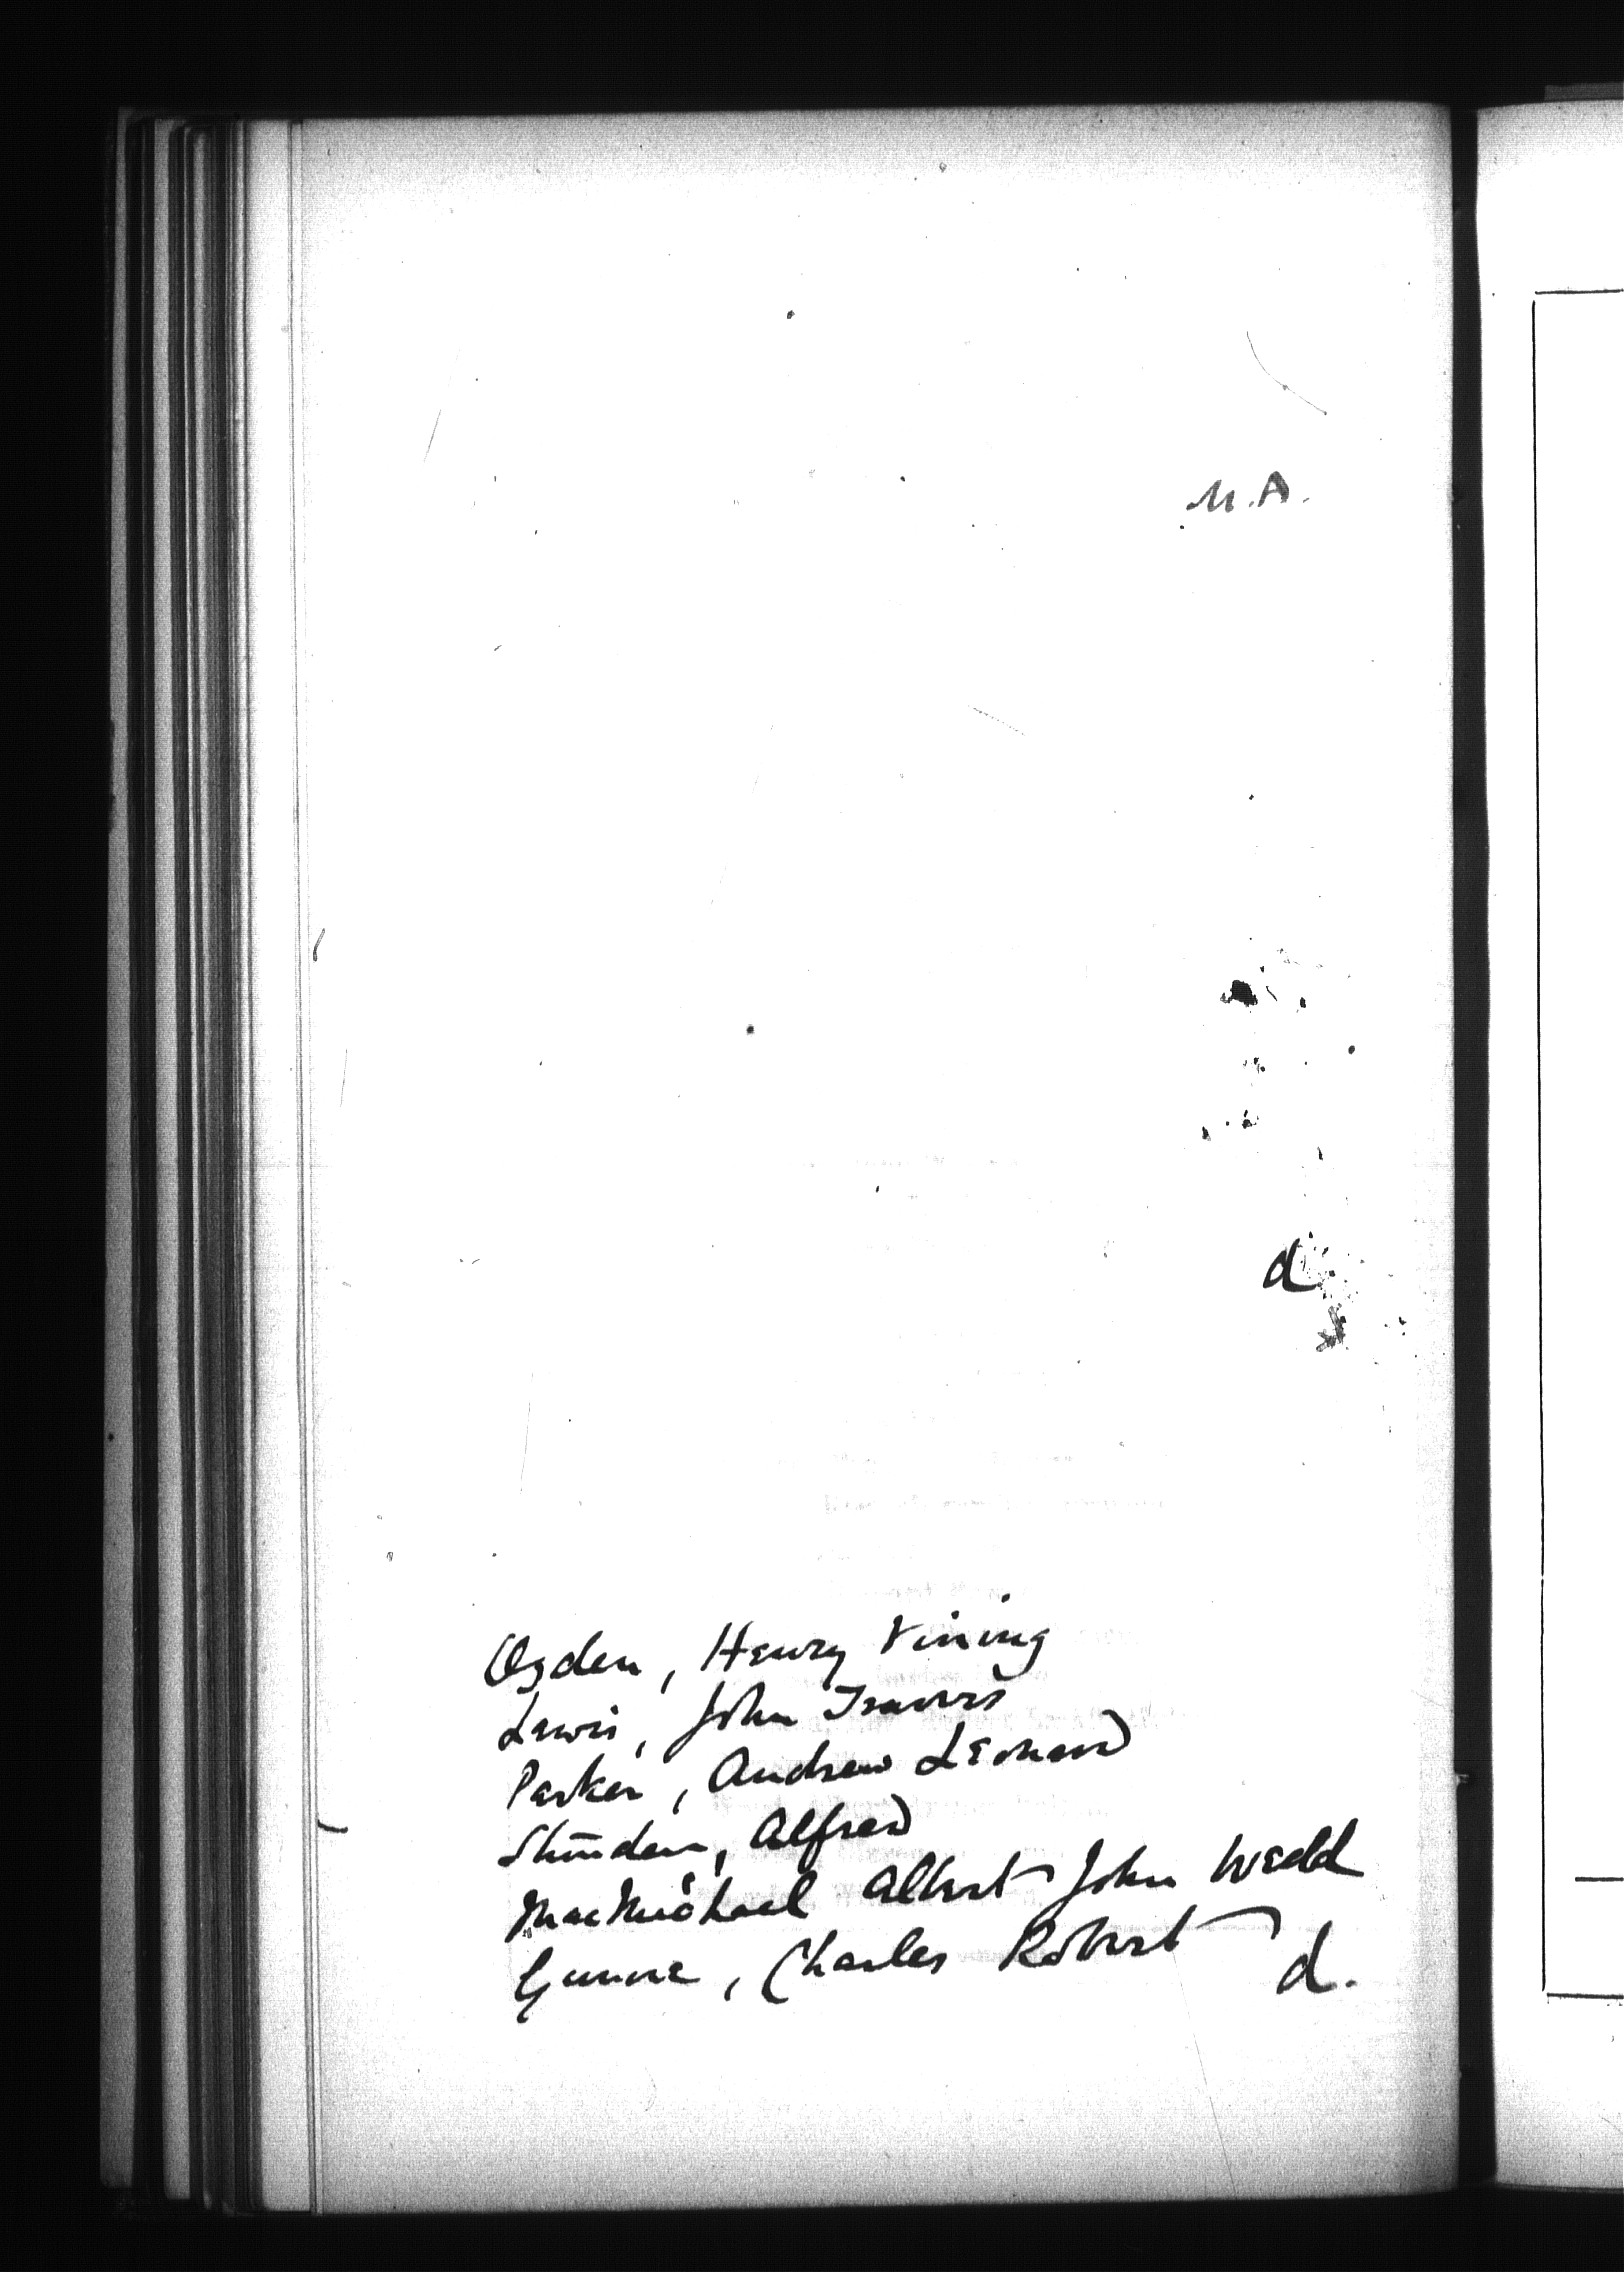 M.A.
d
Ogden, Henry Vining
Lewis, John Travers
Parker, Andrew Leonard
Alfred
MacMichael Albert John Wedd
Gunne, Charles Robert
d.